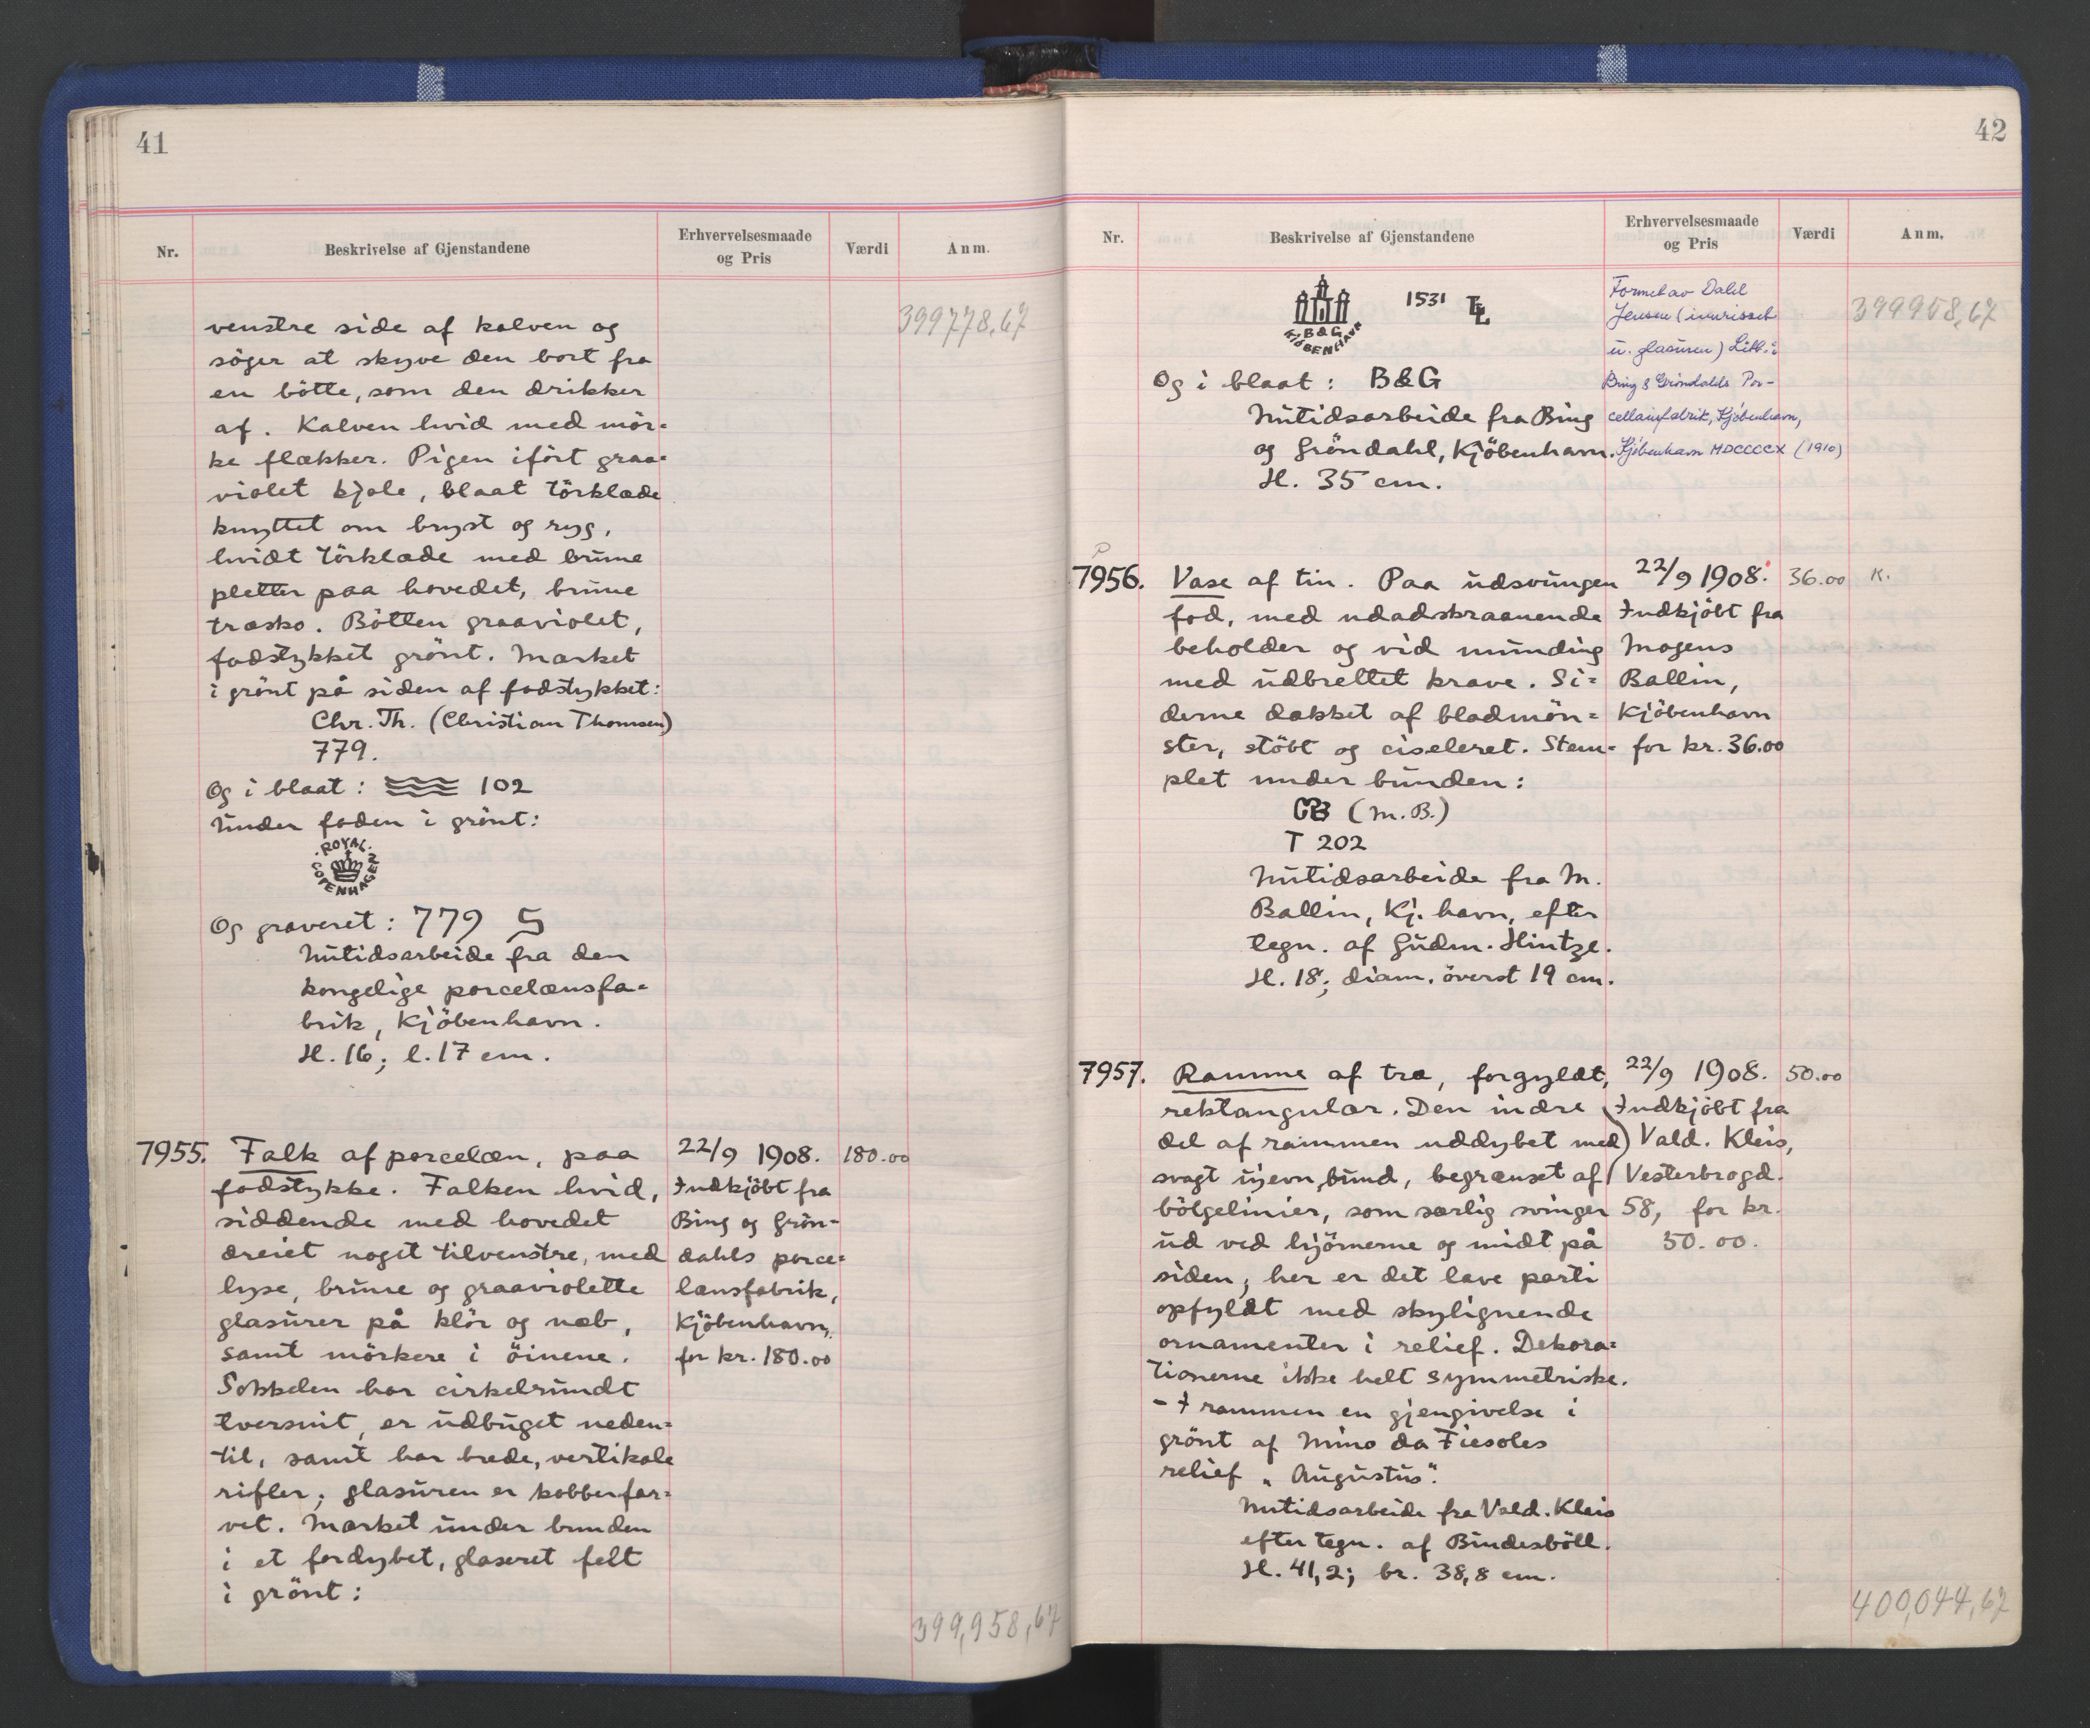 41
Nr.
Beskrivelse af Gjenstandene
Erhvervelsesmaade
og Pris
Værdi
Anm.
399778,67
venstre side af kalven og
söger at skyve den bort fra
en bötte, som den drikker
af. Kalven hvid med mör=
ke flækker. Pigen ifört graa=
violet kjole, blaat törklæde
knyttet om bryst og ryg,
hvidt törklæde med brune
pletter paa hovedet, brune
træsko. Bötten graaviolet,
fodstykket grönt. Mærket
i grönt på siden af fodstykket:
Chr. Th. (Christian Thomsen)
779.
Og i blaat: 102
Under foden i grönt:
ROYAL
COPENHAGEN
Og graveret: 779
Nutidsarbeide fra den
kongelige porcelænsfa=
brik, Kjöbenhavn.
H. 16; l. 17 cm.
7955. Falk af porcelæn, paa
fodstykke. Falken hvid,
siddende med hovedet
dreiet noget tilvenstre, med
lyse, brune og graaviolette
glasurer på klör og næb,
samt mörkere i öinene.
Sokkelen har cirkelrundt
tversnit, er udbuget neden=
til, samt har brede, vertikale
rifler; glasuren er kobberfar=
vet. Mærket under bunden
i et fordybet, glaseret felt
i grönt:
22/9 1908.
Indkjöbt fra
Bing og Grön=
dahls porce=
lænsfabrik,
Kjöbenhavn,
for kr. 180.00
180.00
399,958,67
42
Nr.
Beskrivelse af Gjenstandene
Erhvervelsesmaade
og Pris
Værdi
Anm.
399958,67
1531
B&G
KJØBENHAVN
Og i blaat: B&G
Nutidsarbeide fra Bing
og Gröndahl, Kjöbenhavn.
H. 35 cm.
Formet av Dahl
Jensen (innrisset
u. glasuren) Litt.:
Bing & Gröndahls Por-
cellainfabrik, Kjöbenhavn,
Kjöbenhavn MDCCCCX (1910)
7956. Vase af tin. Paa udsvungen
fod, med udadskraanende
beholder og vid munding
med udbrettet krave. Si=
derne dækket af bladmön=
ster, stöbt og ciseleret. Stem=
plet under bunden:
(M.B.)
T 202
Nutidsarbeide fra M.
Ballin, Kj.havn, efter
tegn. af Gudm. Hintze.
H. 18; diam. överst 19 cm.
22/9 1908.
Indkjöbt fra
Mogens
Ballin,
Kjöbenhavn
for kr. 36.00
36.00
K.
7957. Ramme af træ, forgyldt,
rektangulær. Den indre
del af rammen uddybet med
svagt ujevn bund, begrænset af
bölgelinier, som særlig svinger
ud ved hjörnerne og midt på
siden; her er det lave parti
opfyldt med skylignende
ornamenter i relief. Dekora=
tionerne ikke helt symmetriske.
- I rammen en gjengivelse i
grönt af Mino da Fiesoles
relief „Augustus".
Nutidsarbeide fra Vald. Kleis
efter tegn. af Bindesböll.
H. 41,2; br. 38,8 cm.
22/9 1908.
Indkjöbt fra
Vald. Kleis,
Vesterbrogd.
58, for kr.
50.00.
50.00
400,044,67